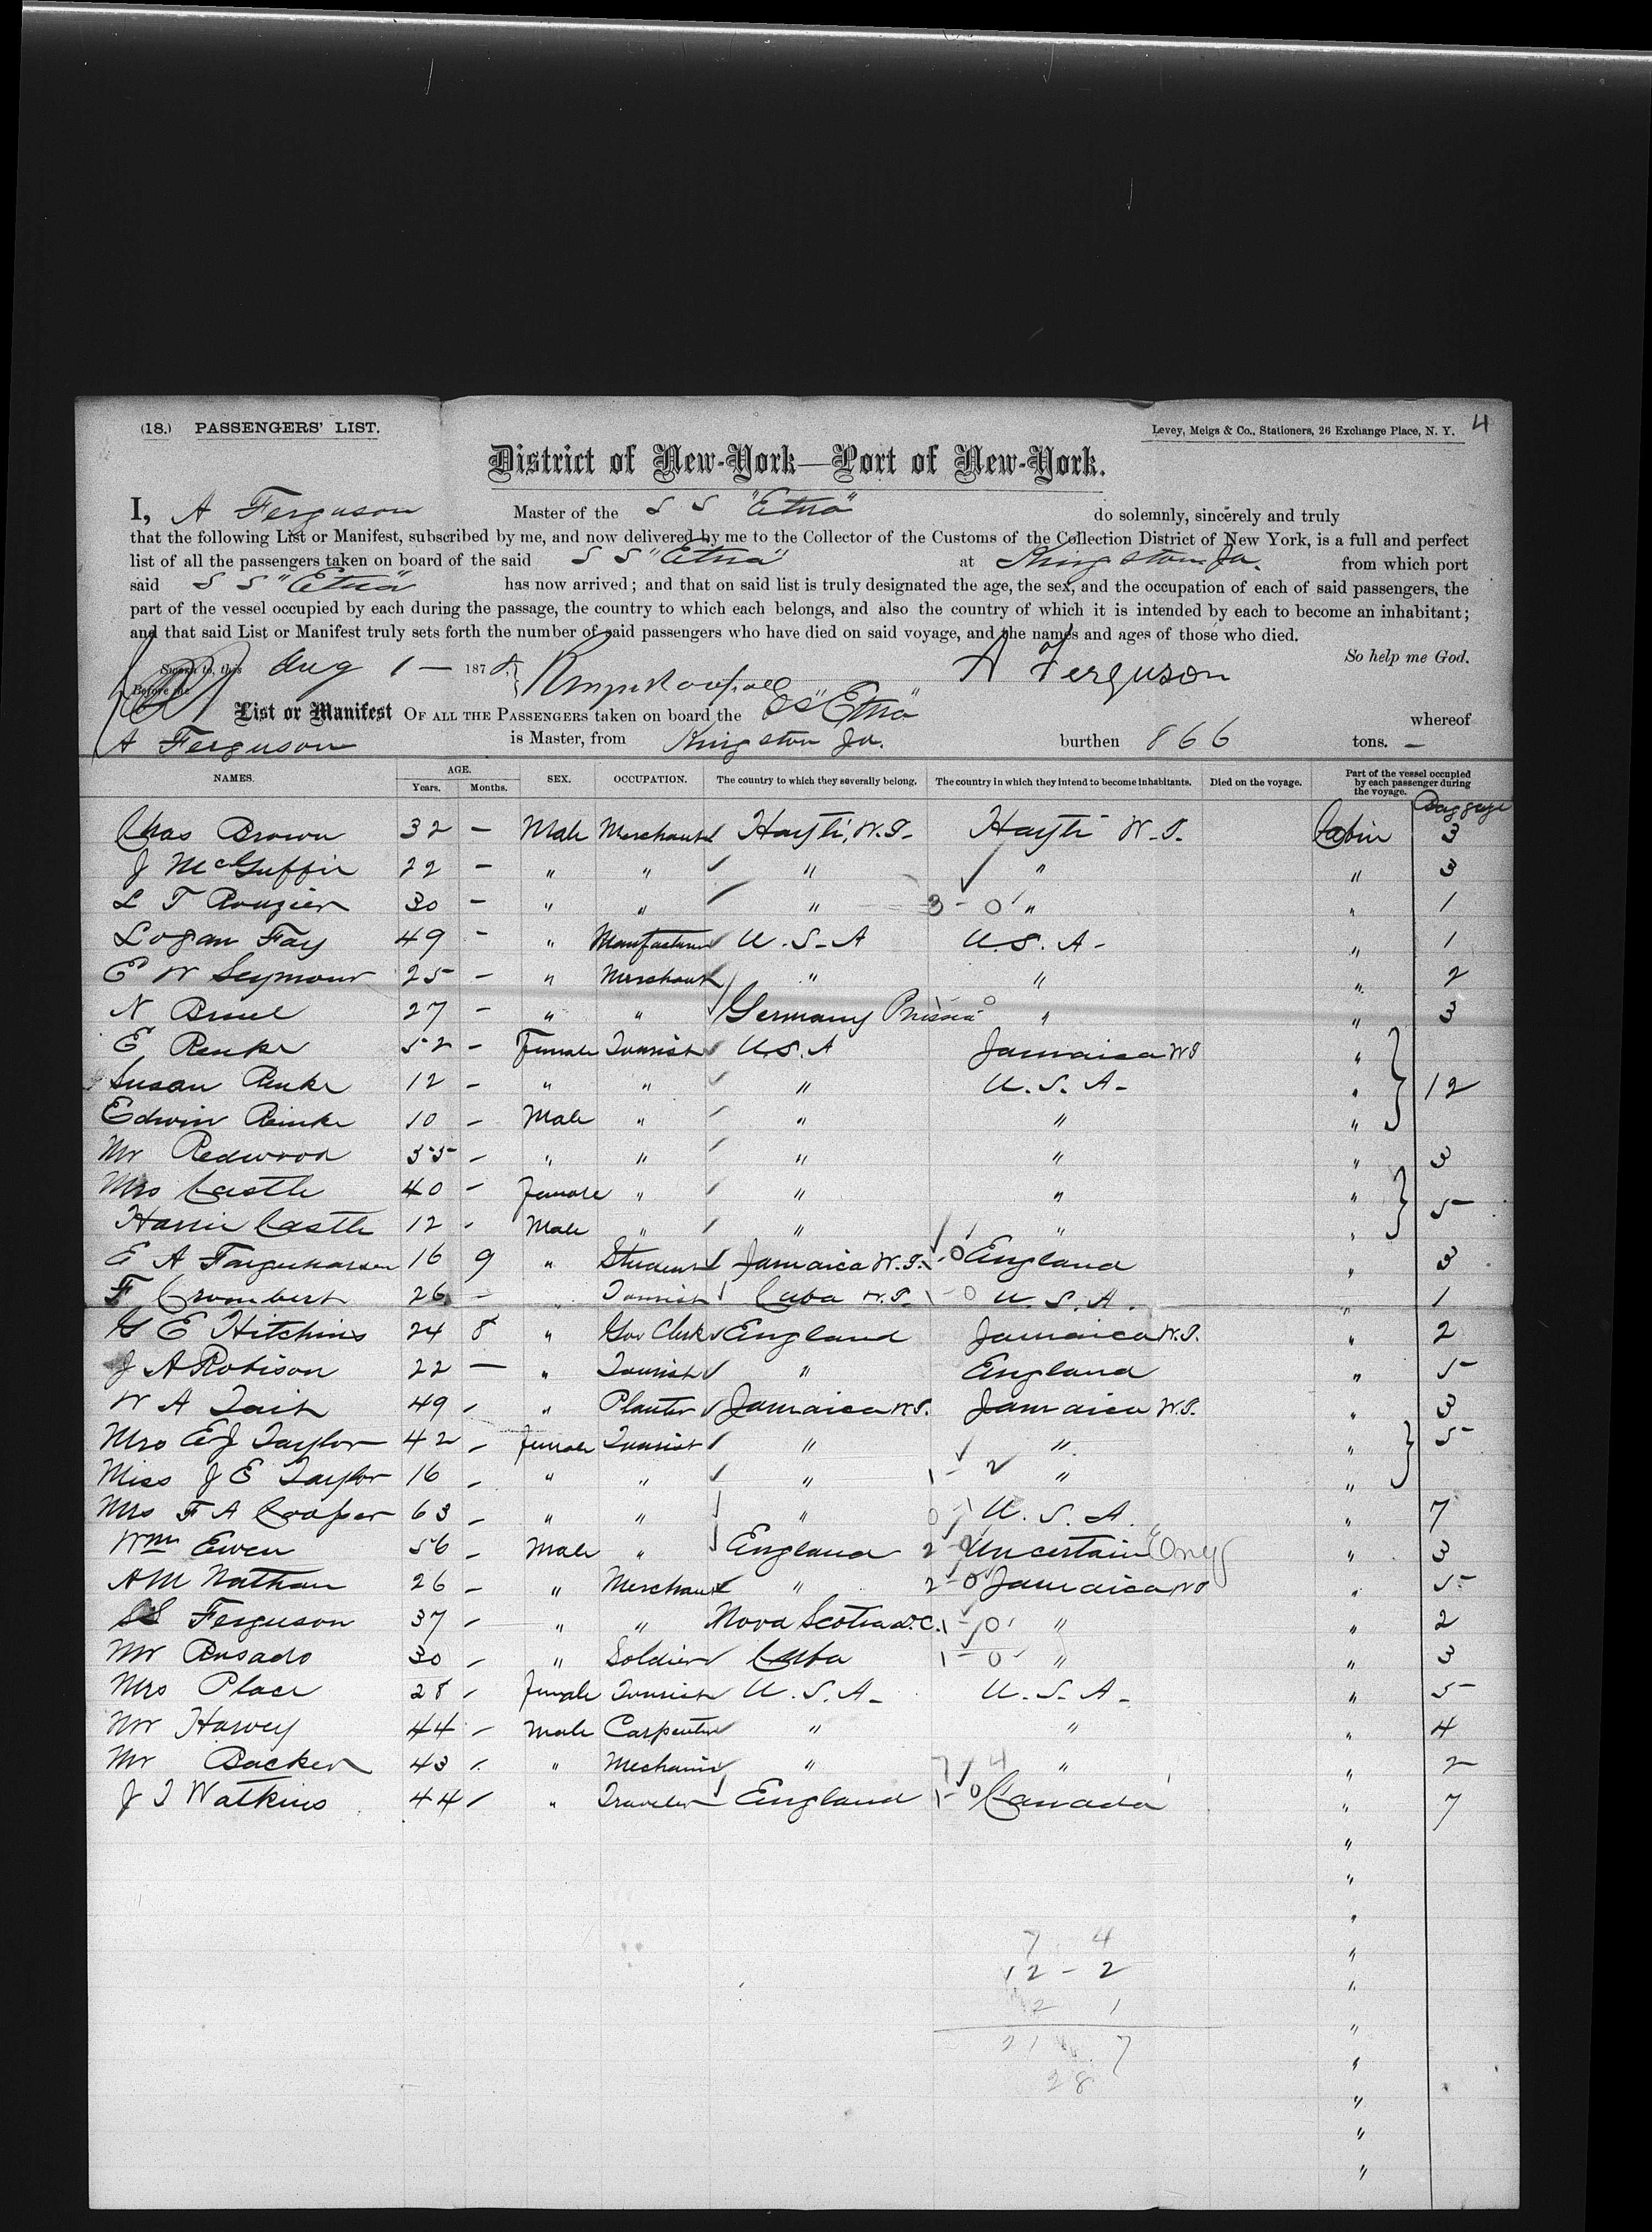 (18.) PASSENGERS' LIST.
Levey, Meigs & Co., Stationers, 26 Exchange Place, N. Y. 4
District of New-York—Port of New-York.
I, A Ferguson Master of the S S "Etna" do solemnly, sincerely and truly
that the following List or Manifest, subscribed by me, and now delivered by me to the Collector of the Customs of the Collection District of New York, is a full and perfect
list of all the passengers taken on board of the said S S "Etna" at Kingston Ja. from which port
said S S "Etna" has now arrived; and that on said list is truly designated the age, the sex, and the occupation of each of said passengers, the
part of the vessel occupied by each during the passage, the country to which each belongs, and also the country of which it is intended by each to become an inhabitant;
and that said List or Manifest truly sets forth the number of said passengers who have died on said voyage, and the names and ages of those who died.
So help me God.
Sworn to, this Aug 1 — 187 A Ferguson
Before me
List or Manifest OF ALL THE PASSENGERS taken on board the SS "Etna" whereof
A Ferguson is Master, from Kingston Ja. burthen 866 tons. —
NAMES. AGE. Years. Months. SEX. OCCUPATION. The country to which they severally belong. The country in which they intend to become inhabitants. Died on the voyage. Part of the vessel occupied by each passenger during the voyage. Baggage
Chas Brown 32 — Male Merchant Hayti, W.I. Hayti W.I. Cabin 3
J McGuffin 22 — " " " " " 3
L T Rouzier 30 — " " " 3-0 " " 1
Logan Fay 49 - " Manufacturer U.S.A U.S.A- " 1
E W Seymour 25 — " Merchant " " " 2
N 27 — " " Germany Prussia " " 3
E Renke 52 - Female Tourist U.S.A Jamaica WI "
Susan Renke 12 - " " " U.S.A- " 12
Edwin Reinke 10 - Male " " " "
Mr Redwood 35 - " " " " " 3
Mrs Castle 40 - Female " " " " 5
Harrie Castle 12 - Male " " " "
E A Farquharson 16 9 " Student Jamaica W.I. 1-0 England " 3
F Crombert 26 — " Tourist Cuba W.I. 1-0 U.S.A. " 1
G E Hitchins 24 8 " Gov Clerk England Jamaica W.I. " 2
J A Robison 22 — " Tourist " England " 5
W A Tait 49 - " Planter Jamaica W.I. Jamaica W.I. " 3
Mrs E J Taylor 42 - Female Tourist " " " 5
Miss J E Taylor 16 - " " " 1-2 " "
Mrs F A Cooper 63 - " " " U.S.A. " 7
Wm Ewen 56 - Male " England 2-0 Uncertain " 3
A M Nathan 26 - " Merchant " 2-0 Jamaica WI " 5
S S Ferguson 37 - " " Nova Scotia 1-0 " " 2
Mr Rosado 30 - " Soldier Cuba 1-0- " " 3
Mrs Place 28 - Female Tourist U.S.A- U.S.A- " 5
Mr Harvey 44 - Male Carpenter " " " 4
Mr Backer 43 - " Mechanic " 7 4 " " 2
J T Watkins 44 - " Traveler England 1-0 Canada " 7
"
"
"
7 4 "
12 - 2 "
2 1 "
21 7 "
28 "
"
"